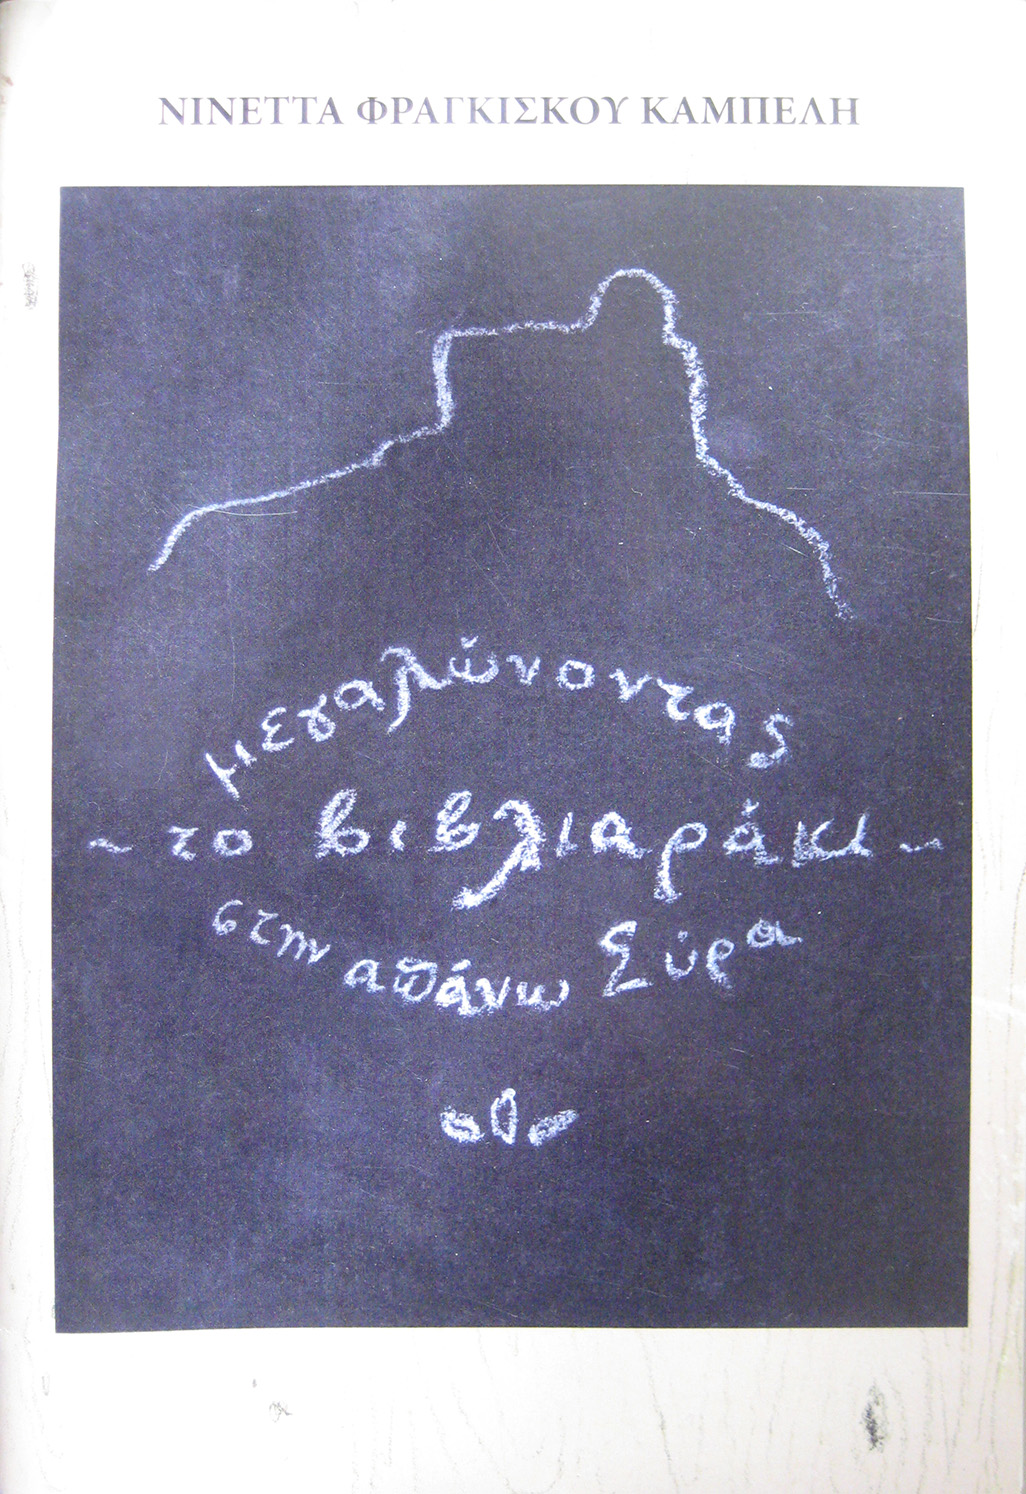 ΝΙΝΕΤΤΑ ΦΡΑΓΚΙΣΚΟΥ ΚΑΜΠΕΛΗ
μεγαλώνοντας
~ το βιβλιαράκι ~
στην απάνω Σύρα